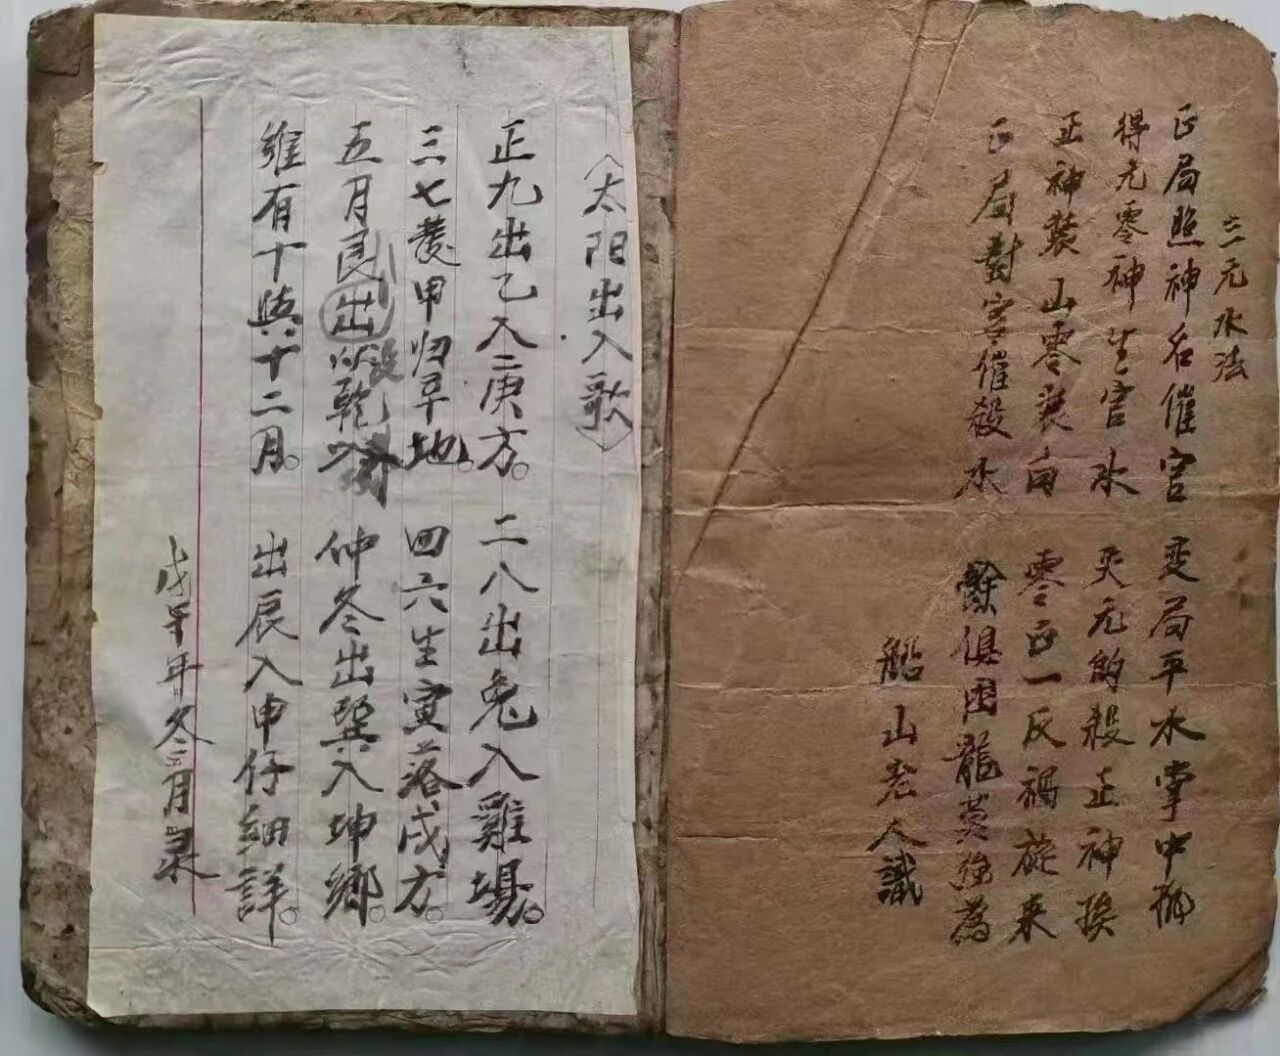 三元水法
正局照神名催官 变局平水掌中抛
得元零神生官水 失元的殺正神挨
正神裝山零裝向 零正一反禍旋来
正局對宮催殺水 餘俱困龍莫強為
船山老人識
（太阳出入歌）
正九出乙入庚方。二八出兔入雞場。
三七發甲归辛地。四六生寅落戌方。
五月艮出没乾 仲冬出巽入坤鄉。
維有十與十二月。出辰入申仔細詳。
戊午年冬三月录